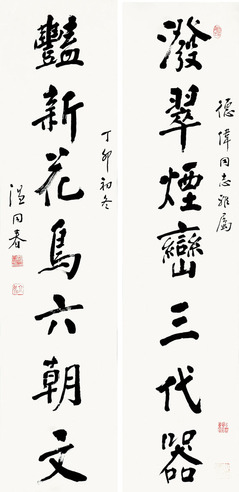 德偉同志雅屬
潑翠煙巒三代器
豔新花鳥六朝文
丁卯初冬
溫同春